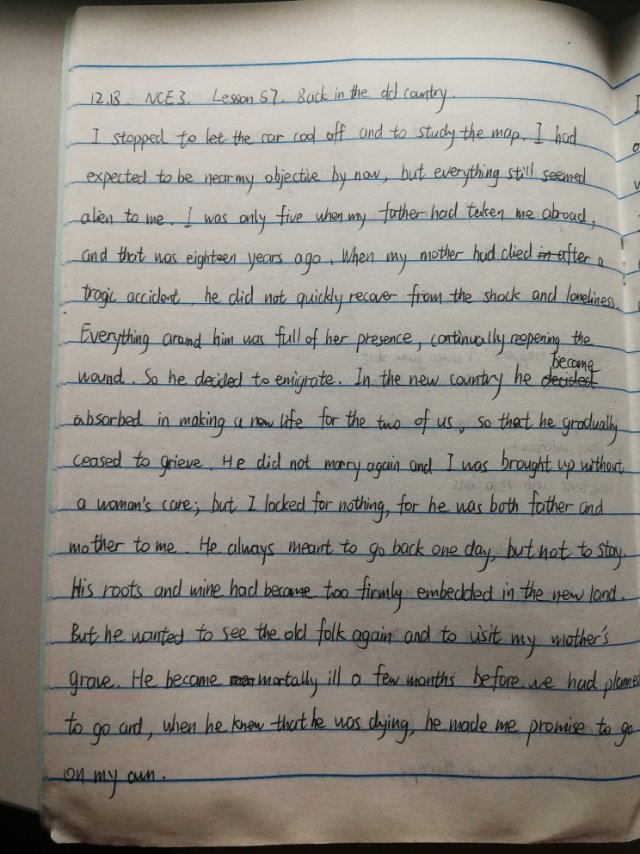 12.13. NCE3. Lesson 57. Back in the old country.
I stopped to let the car cool off and to study the map. I had
expected to be near my objective by now, but everything still seemed
alien to me. I was only five when my father had taken me abroad,
and that was eighteen years ago. When my mother had died in after a
tragic accident, he did not quickly recover from the shock and loneliness.
Everything around him was full of her presence, continually reopening the
wound. So he decided to emigrate. In the new country he decided became
absorbed in making a new life for the two of us, so that he gradually
ceased to grieve. He did not marry again and I was brought up without
a woman's care; but I lacked for nothing, for he was both father and
mother to me. He always meant to go back one day, but not to stay.
His roots and mine had become too firmly embedded in the new land.
But he wanted to see the old folk again and to visit my mother's
grave. He became mortally ill a few months before we had planned
to go and, when he knew that he was dying, he made me promise to go
on my own.